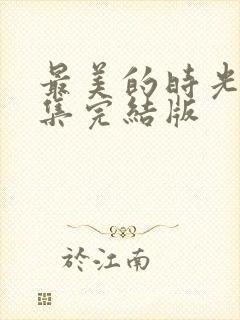 最美的時光
集完結版
於江南